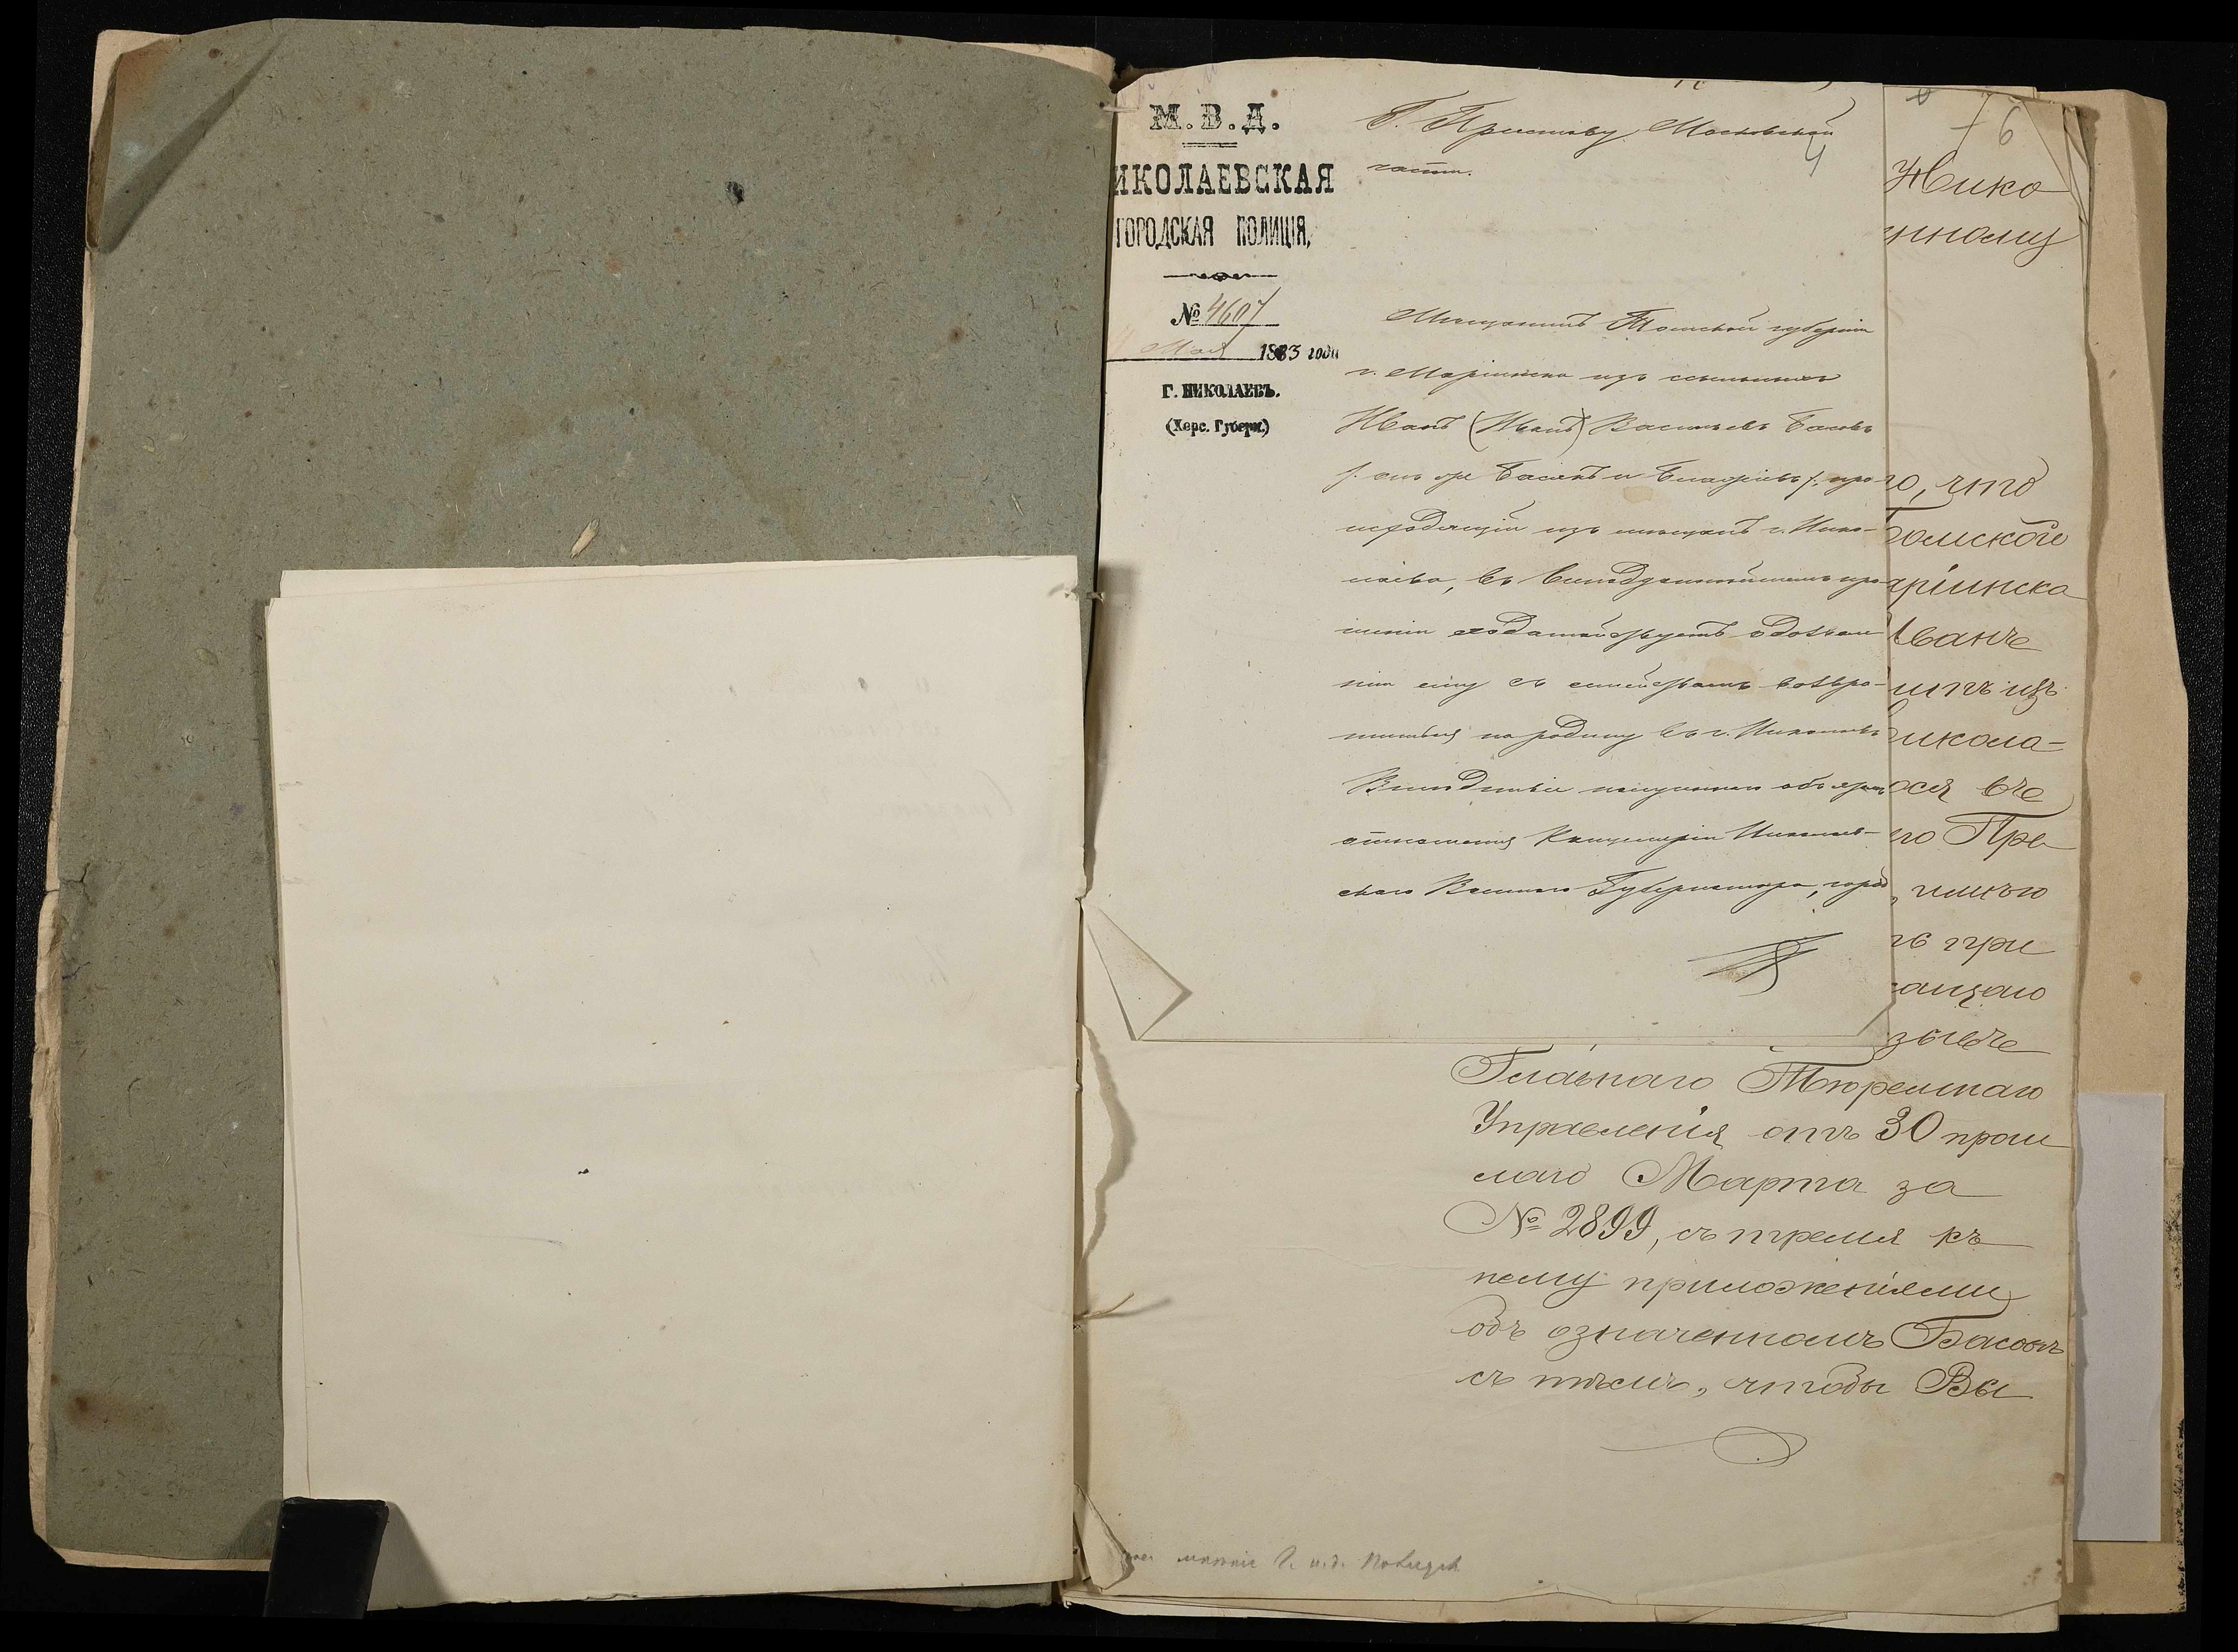 М. В. Д.
НИКОЛАЕВСКАЯ
ГОРОДСКАЯ ПОЛИЦІЯ,
№ 4607
Мая 1883 года
Г. НИКОЛАЕВЪ.
(Херс. Губерн.)
Г. Приставу Московской
4
части.
Мѣщанинъ Томской губерніи
г. Маріинска изъ ссыльныхъ
Иванъ (Иванъ) Васильевъ Басовъ
исходящій изъ мѣщанъ г. Нико-
лаева, въ Всеподданнѣйшемъ про
шеніи ходатайствуетъ о дозволе
ніи ему съ семействомъ возвра-
титься на родину въ г. Николаевъ
Вслѣдствіе полученнаго объ этомъ
отношенія Канцеляріи Николаев-
скаго Военнаго Губернатора, город
76
Нико
нному
го, что
Томской
аріинска
Иванъ
изъ
икола-
ося въ
го Пре
при
Главнаго Тюремнаго
Управленія отъ 30 прош
лаго Марта за
№ 2899, съ тремя къ
нему приложеніями
объ означенномъ Басовѣ
съ тѣмъ, чтобы Вы
мнѣніе